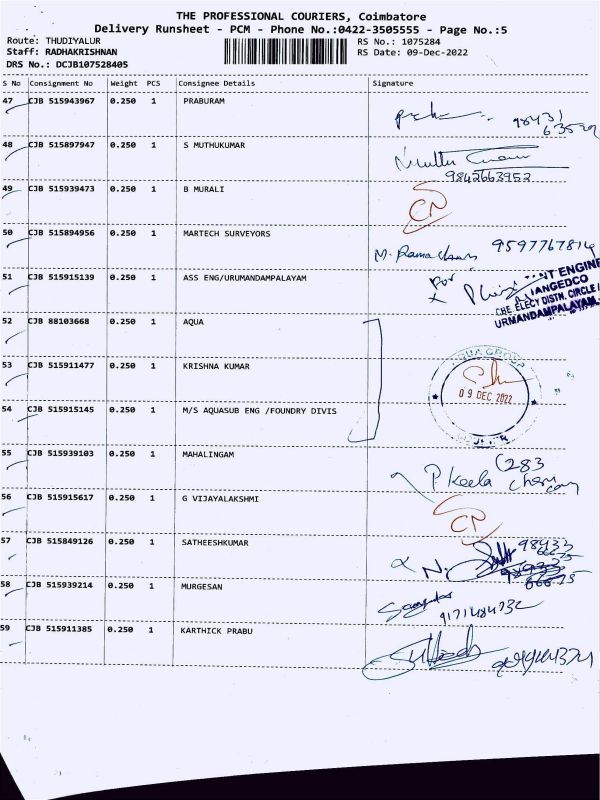 THE PROFESSIONAL COURIERS, Coimbatore
Delivery Runsheet - PCM - Phone No.:0422-3505555 - Page No.:5
Route: THUDIYALUR RS No.: 1075284
Staff: RADHAKRISHNAN RS Date: 09-Dec-2022
DRS No.: DCJB107528405
S No Consignment No Weight PCS Consignee Details Signature
47 CJB 515943967 0.250 1 PRABURAM
48 CJB 515897947 0.250 1 S MUTHUKUMAR
9842663952
49 CJB 515939473 0.250 1 B MURALI
CN
50 CJB 515894956 0.250 1 MARTECH SURVEYORS
M. Ramachan
51 CJB 515915139 0.250 1 ASS ENG/URUMANDAMPALAYAM
For
NT ENGINE
TANGEDCO
CBE. ELECY DISTN. CIRCLE
URMANDAMPALAYAM
52 CJB 88103668 0.250 1 AQUA
53 CJB 515911477 0.250 1 KRISHNA KUMAR
AQUA GROUP
09 DEC 2022
54 CJB 515915145 0.250 1 M/S AQUASUB ENG /FOUNDRY DIVIS
55 CJB 515939103 0.250 1 MAHALINGAM
P. Keela
56 CJB 515915617 0.250 1 G VIJAYALAKSHMI
CN
57 CJB 515849126 0.250 1 SATHEESHKUMAR
58 CJB 515939214 0.250 1 MURGESAN
9171484732
59 CJB 515911385 0.250 1 KARTHICK PRABU